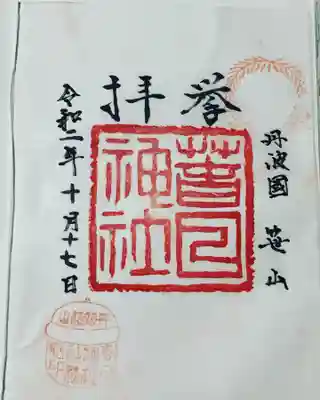 奉拝
丹波國 笹山
春日
神社
令和二年十月十七日